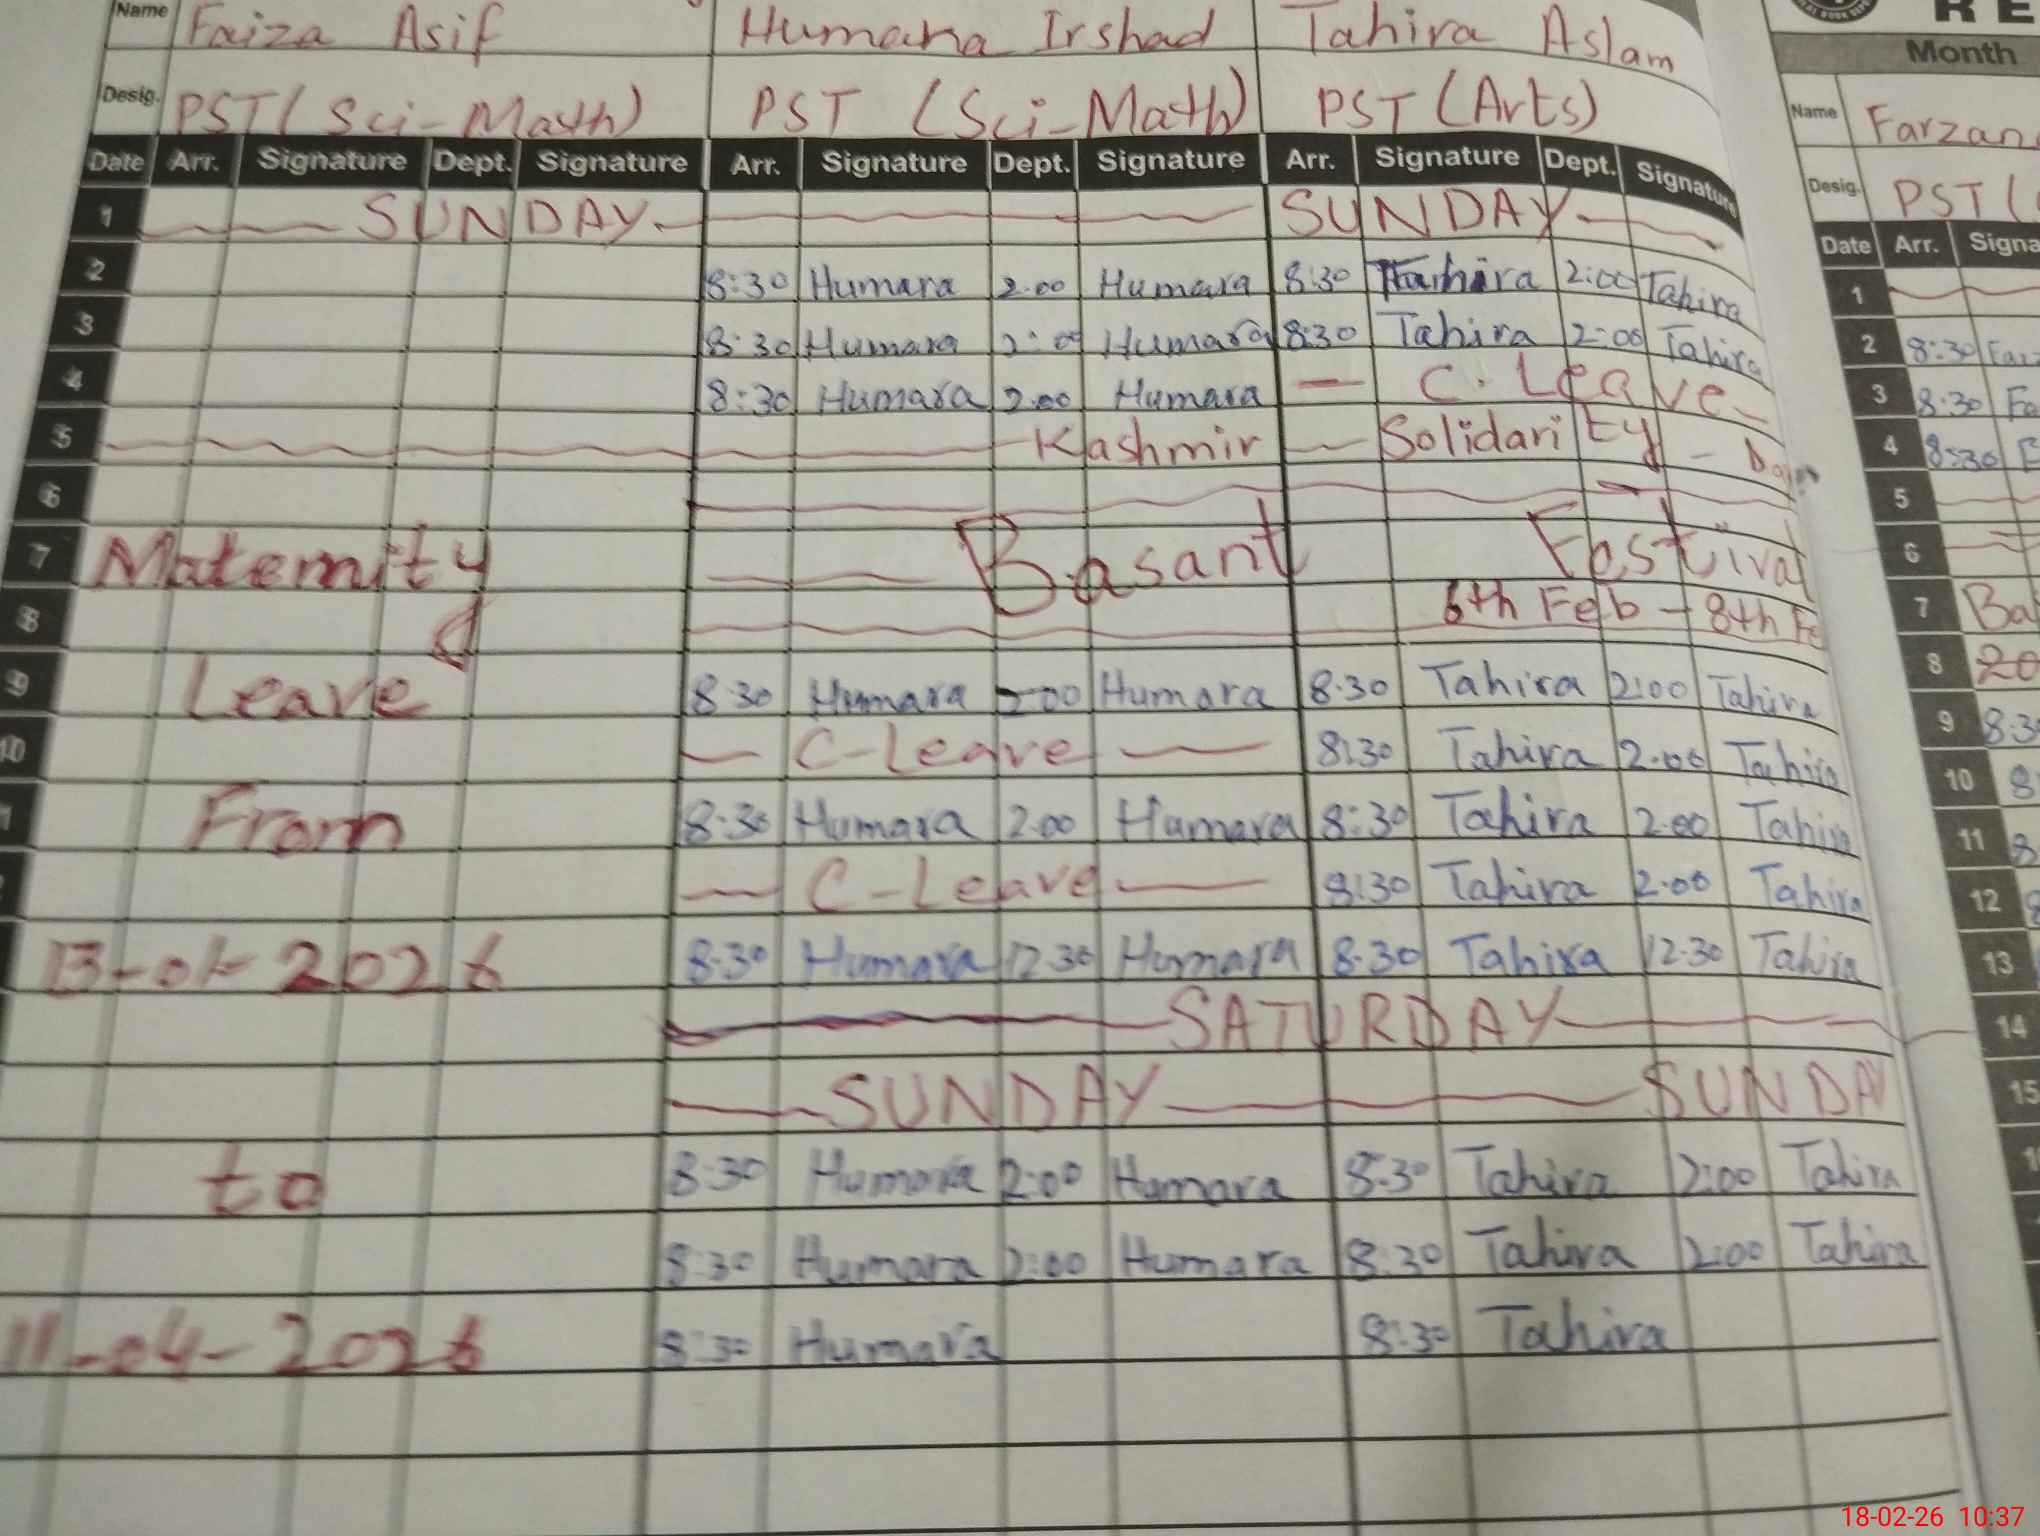 Name Faiza Asif Humara Irshad Tahira Aslam
Desig. PST (Sci-Math) PST (Sci-Math) PST (Arts)
Date Arr. Signature Dept. Signature Arr. Signature Dept. Signature Arr. Signature Dept. Signature
1 SUNDAY SUNDAY
2 8:30 Humara 2.00 Humara 8:30 Tahira 2:00 Tahira
3 8:30 Humara 2:00 Humara 8:30 Tahira 2:00 Tahira
4 8:30 Humara 2.00 Humara — C. Leave
5 Kashmir — Solidarity - Day
6
7 Maternity Basant Festival
8 6th Feb - 8th Fe
9 Leave 8.30 Humara 2.00 Humara 8.30 Tahira 2:00 Tahira
10 — C-Leave — 8:30 Tahira 2.00 Tahira
From 8:30 Humara 2.00 Humara 8:30 Tahira 2.00 Tahira
— C-Leave — 8:30 Tahira 2.00 Tahira
13-01-2026 8.30 Humara 12.30 Humara 8.30 Tahira 12.30 Tahira
SATURDAY
SUNDAY SUNDA
to 8.30 Humara 2:00 Humara 8.30 Tahira 2:00 Tahira
8:30 Humara 2:00 Humara 8:30 Tahira 2:00 Tahira
11-04-2026 8:30 Humara 8:30 Tahira
RE
Month
Name Farzan
Desig. PST (
Date Arr. Signa
1
2 8:30
3 8:30
4 8:30
5
6
7 Ba
8 20
9 8.3
10 8
11 8
12 8
13
14
15
18-02-26 10:37